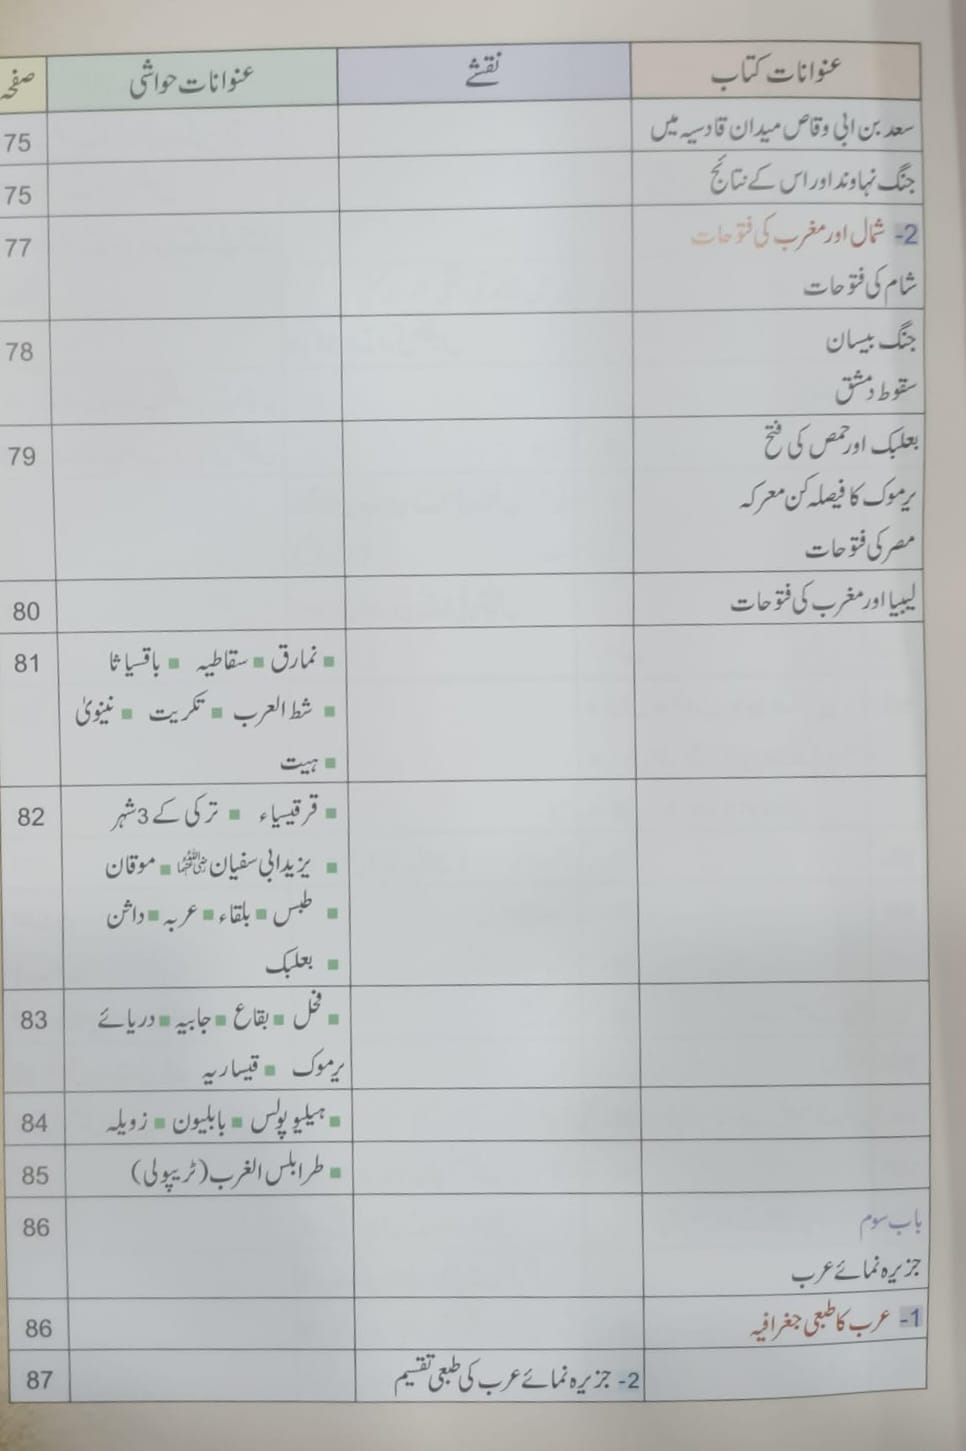 عنوانات کتاب نقشے عنوانات حواشی صفحہ
سعد بن ابی وقاص میدان قادسیہ میں 75
جنگ نہاوند اور اس کے نتائج 75
2- شمال اور مغرب کی فتوحات 77
شام کی فتوحات
جنگ بیسان 78
سقوط دمشق
بعلبک اور حمص کی فتح 79
یرموک کا فیصلہ کن معرکہ
مصر کی فتوحات
لیبیا اور مغرب کی فتوحات 80
■ نمارق ■ سقاطیہ ■ باقسیاثا 81
■ شط العرب ■ تکریت ■ نینویٰ
■ ہیت
■ قرقیسیاء ■ ترکی کے 3 شہر 82
■ یزید ابی سفیان رضی اللہ عنہما ■ موقان
■ طبس ■ بلقاء ■ عربہ ■ داثن
■ بعلبک
■ فحل ■ بقاع ■ جابیہ ■ دریائے 83
یرموک ■ قیساریہ
■ ہیلیوپولس ■ بابلیون ■ زویلہ 84
■ طرابلس الغرب (ٹریپولی) 85
باب سوم 86
جزیرہ نمائے عرب
1- عرب کا طبعی جغرافیہ 86
2- جزیرہ نمائے عرب کی طبعی تقسیم 87